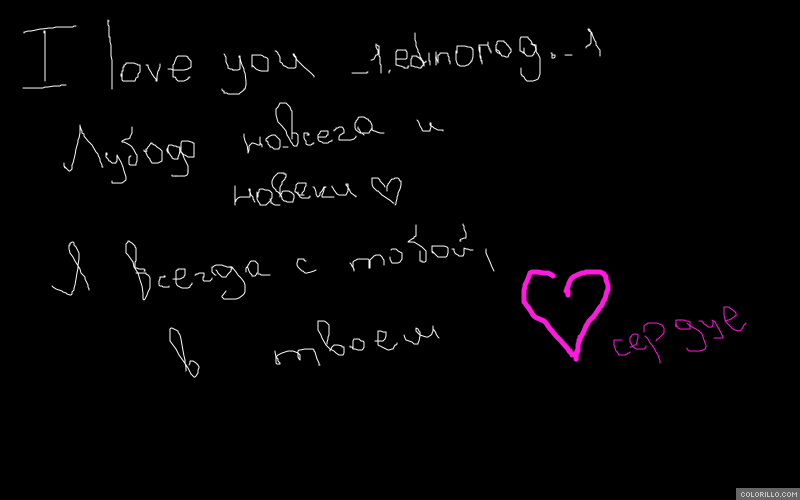 I love you _1.edinorog._1
Лубофф навсега и
навеки ♡
Я всегда с тобой,
в твоем
сердце
COLORILLO.COM